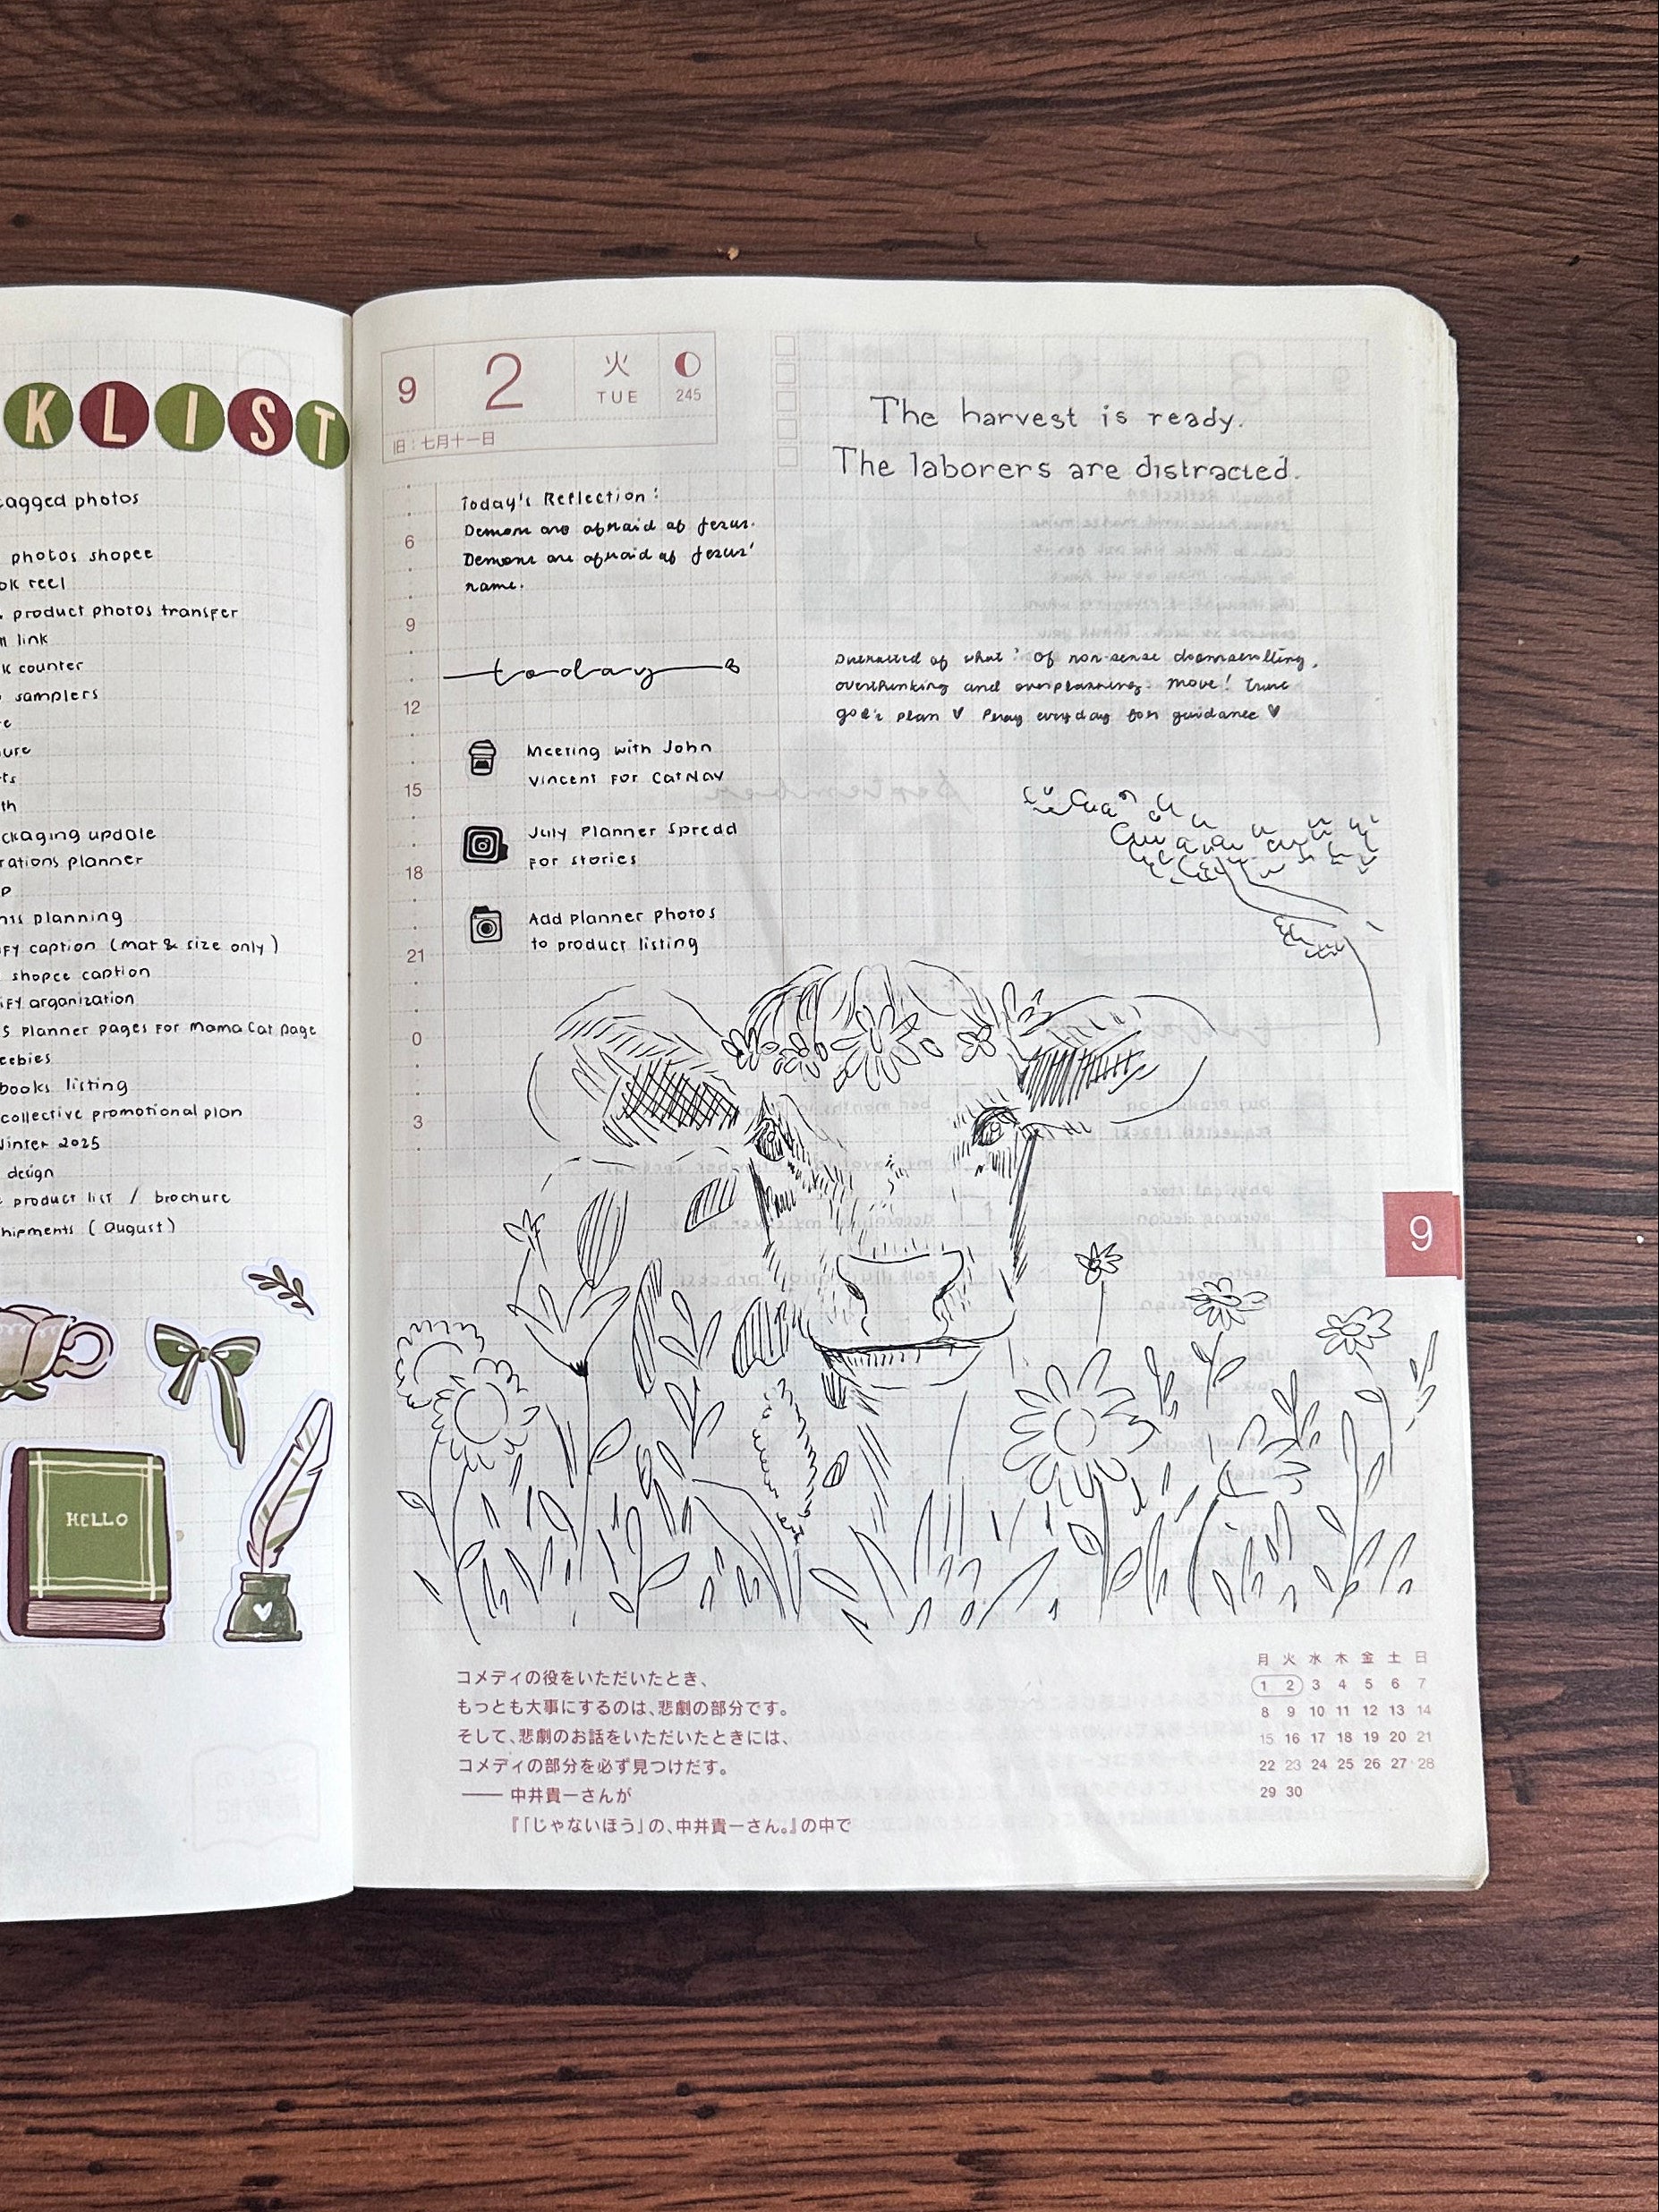 KLIST
tagged photos
photos shopee
ok reel
product photos transfer
link
k counter
samplers
ckaging update
rations planner
planning
fy caption (mat & size only)
shopee caption
ify organization
s planner pages for Mama Cat page
eebies
books listing
collective promotional plan
Winter 2025
design
product list / brochure
hipments (August)
HELLO
9
2
火
TUE
245
旧：七月十一日
The harvest is ready.
The laborers are distracted.
Today's Reflection:
Demons are afraid of Jesus.
Demons are afraid of Jesus'
name.
today
Meeting with John
Vincent for CatNav
July Planner Spread
for stories
Add planner photos
to product listing
Distracted of what? Of non-sense doomscrolling,
overthinking and overplanning. Move! Trust
God's plan ♥ Pray everyday for guidance ♥
6
9
12
15
18
21
0
3
9
コメディの役をいただいたとき、
もっとも大事にするのは、悲劇の部分です。
そして、悲劇のお話をいただいたときには、
コメディの部分を必ず見つけだす。
—— 中井貴一さんが
『「じゃないほう」の、中井貴一さん。』の中で
月 火 水 木 金 土 日
1 2 3 4 5 6 7
8 9 10 11 12 13 14
15 16 17 18 19 20 21
22 23 24 25 26 27 28
29 30